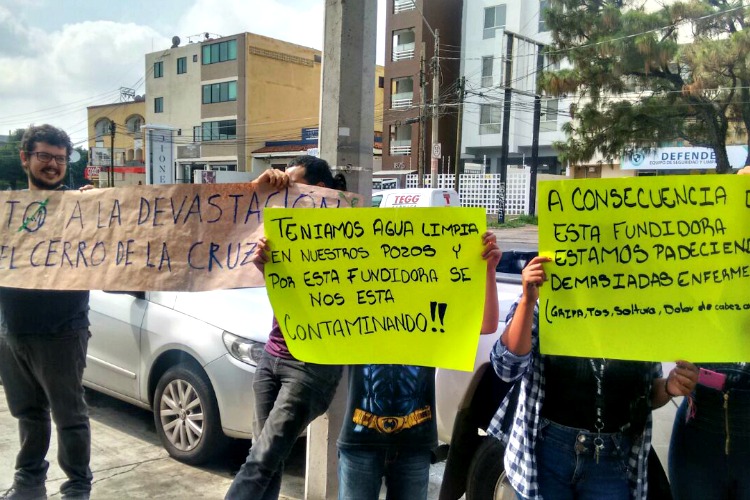 TO A LA DEVASTACIÓN
EL CERRO DE LA CRUZ
TENIAMOS AGUA LIMPIA
EN NUESTROS POZOS Y
POR ESTA FUNDIDORA SE
NOS ESTA
CONTAMINANDO!!
A CONSECUENCIA D
ESTA FUNDIDORA
ESTAMOS PADECIEN
DEMASIADAS ENFERME
(GRIPA, Tos, Soltura, Dolor de cabeza
TEGG
DEFENDE
EQUIPO DE SEGURIDAD Y